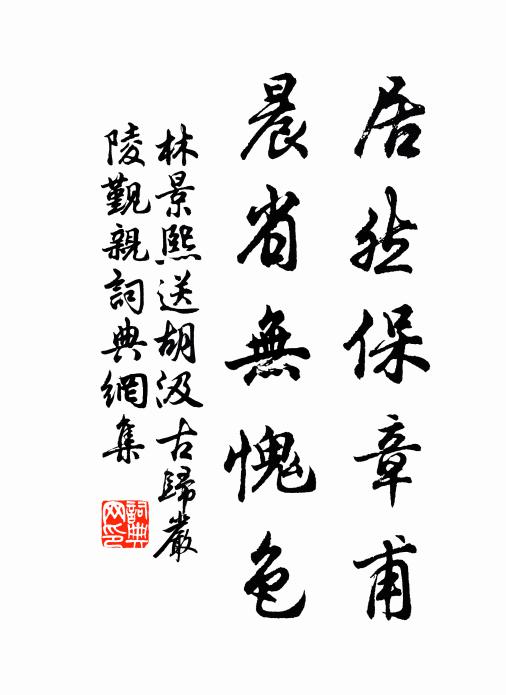 居然保章甫
晨省無愧色
林景熙送胡汲古歸嚴
陵覲親詞典網集
詞典
网印